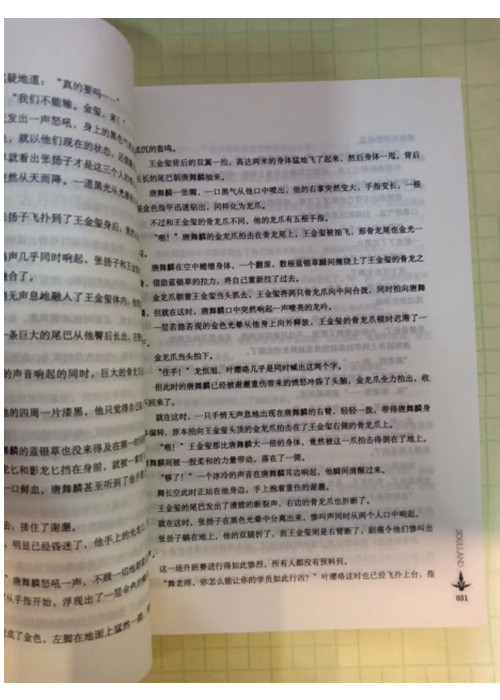 疑地道："真的要吗……"
"我们不能输。金玺，来！"
发出一声怒吼，身上的黑色
，就以他们现在的状态，还
就看出张扬子才是这三个人
然从天而降。一道黑光从
张扬子飞扑到了王金玺身后，
声几乎同时响起，张扬子和王金
融合了。
悄无声息地融入了王金玺体内，
一条巨大的尾巴从他臀后长出，
的声音响起的同时，巨大的骨龙
他的四周一片漆黑，他只觉得自己
舞麟的蓝银草也没来得及在第一
龙匕和影龙匕挡在身前，就被一
一口鲜血，唐舞麟甚至听到了他
去，接住了谢邂。
明显已经昏迷了，他手上的光龙
"唐舞麟怒吼一声，不顾一切地
从手指开始，浮现出了一层金色的
变成了金色，左脚在地面上猛然一
低沉的轰鸣。
王金玺背后的双翼一拍，高达两米的身体猛地飞了起来，然后身体一甩，背后
长长的尾巴朝唐舞麟抽来。
唐舞麟一张嘴，一口黑气从他口中喷出，他的右掌突然变大，手指变长，一根
根金色指甲迅速钻出，同样化为龙爪。
不过和王金玺的骨龙爪不同，他的龙爪有五根手指。
"啪！"唐舞麟的金龙爪拍击在骨龙尾上，王金玺被抽飞，那骨龙尾也金光一
唐舞麟在空中蜷缩身体，一个翻滚，数根蓝银草瞬间缠绕上了王金玺的骨龙之
借助蓝银草的拉力，将自己重新拉了过去。
金龙爪朝着王金玺当头抓去，王金玺将两只骨龙爪向中间合拢，同时拍向唐舞
但就在这时，唐舞麟口中突然响起一声嘹亮的龙吟。
一层若隐若现的金色光晕从他身上向外释放，王金玺的骨龙爪顿时迟滞了一
金龙爪当头拍下。
"住手！"龙恒旭、叶璎珞几乎是同时喊出这两个字。
但此时的唐舞麟已经被谢邂重伤带来的愤怒冲昏了头脑，金龙爪全力拍出，收
不回来了。
就在这时，一只手悄无声息地出现在唐舞麟的右臂，轻轻一拨，带得唐舞麟身
偏转，原本拍向王金玺头顶的金龙爪拍击在了王金玺右侧的骨龙爪上。
"啪！"王金玺那比唐舞麟大一倍的身体，竟然被这一爪拍击得倒在了地上，
舞麟则被一股柔和的力量带动，落在了一侧。
"够了！"一个冰冷的声音在唐舞麟耳边响起，他瞬间清醒过来。
舞长空此时正站在他身边，手上抱着重伤的谢邂。
王金玺的尾巴发出了清脆的断裂声，右边的骨龙爪也折断了。
就在这时，张扬子在黑色光晕中分离出来，惨叫声同时从两个人口中响起。
张扬子躺在地上，他的双腿折了，而王金玺则是右臂断了，剧痛令他们惨叫出
这一场升班赛进行得如此惨烈，所有人都没有预料到。
"舞老师，你怎么能让你的学员如此行凶？"叶璎珞这时也已经飞扑上台，指
SOULLAND
031